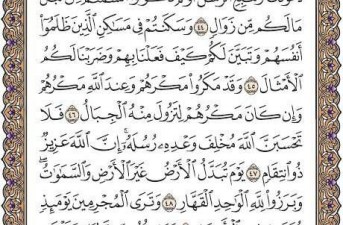 مَا لَكُم مِّن زَوَالٍ ٤٤ وَسَكَنتُمْ فِي مَسَٰكِنِ ٱلَّذِينَ ظَلَمُوٓا۟
أَنفُسَهُمْ وَتَبَيَّنَ لَكُمْ كَيْفَ فَعَلْنَا بِهِمْ وَضَرَبْنَا لَكُمُ
ٱلْأَمْثَالَ ٤٥ وَقَدْ مَكَرُوا۟ مَكْرَهُمْ وَعِندَ ٱللَّهِ مَكْرُهُمْ
وَإِن كَانَ مَكْرُهُمْ لِتَزُولَ مِنْهُ ٱلْجِبَالُ ٤٦ فَلَا
تَحْسَبَنَّ ٱللَّهَ مُخْلِفَ وَعْدِهِۦ رُسُلَهُۥٓ إِنَّ ٱللَّهَ عَزِيزٌ
ذُو ٱنتِقَامٍ ٤٧ يَوْمَ تُبَدَّلُ ٱلْأَرْضُ غَيْرَ ٱلْأَرْضِ وَٱلسَّمَٰوَٰتُ
وَبَرَزُوا۟ لِلَّهِ ٱلْوَٰحِدِ ٱلْقَهَّارِ ٤٨ وَتَرَى ٱلْمُجْرِمِينَ يَوْمَئِذٍ